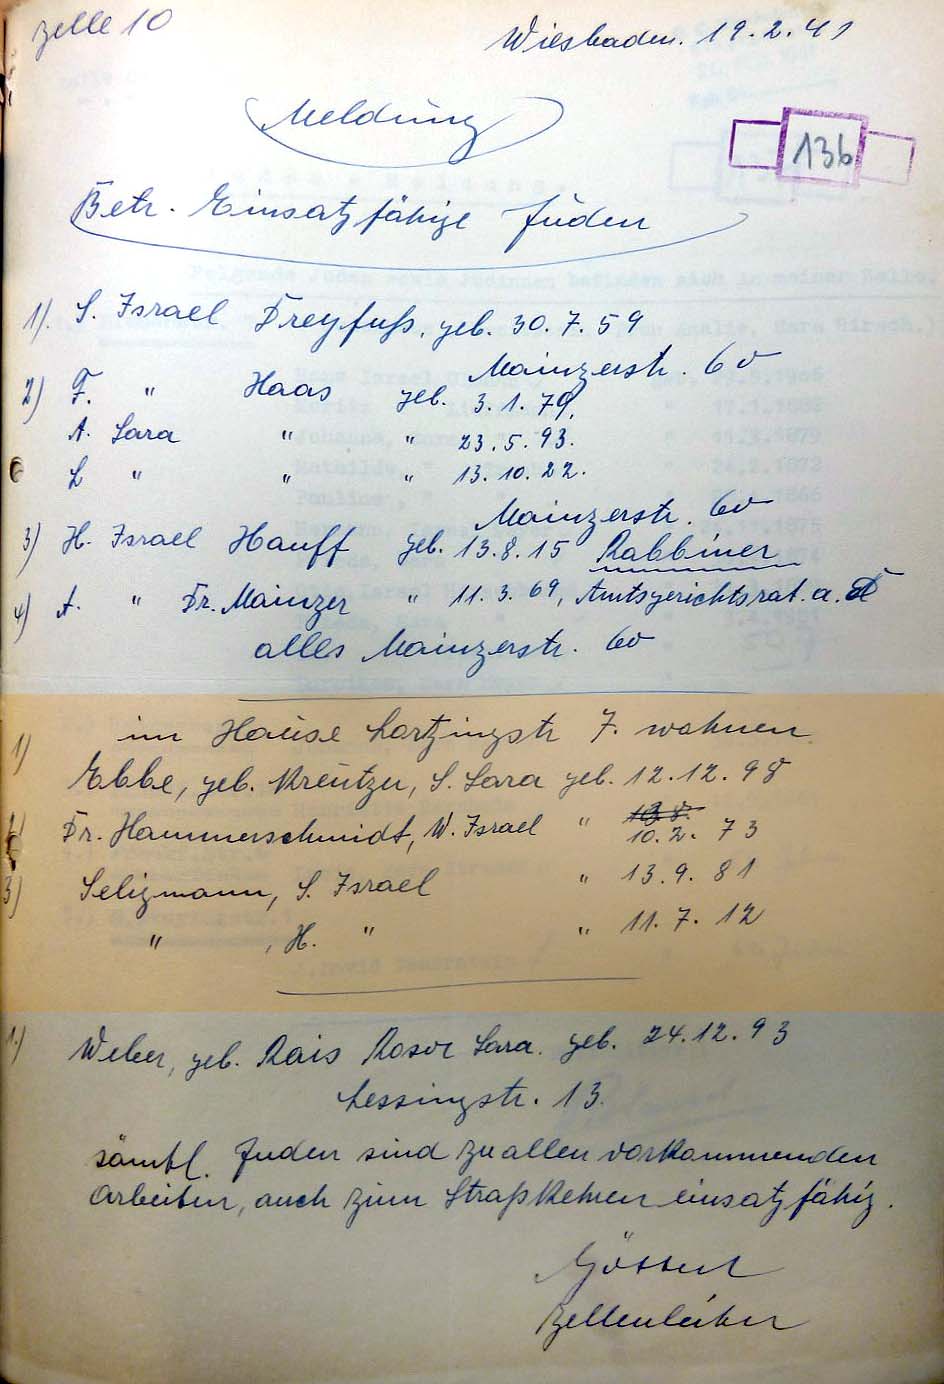 Zelle 10
Wiesbaden. 19.2.41
Meldung
136
Betr. Einsatzfähige Juden
1). S. Israel Dreyfuß, geb. 30.7.59
Mainzerstr. 60
2) F. " Haas geb. 3.1.79.
A. Sara " " 23.5.93.
L " " " 13.10.22.
Mainzerstr. 60
3) H. Israel Hauff geb. 13.8.15 Rabbiner
4) A. " Dr. Mainzer " 11.3.69, Amtsgerichtsrat. a. D
alles Mainzerstr. 60
im Hause Lortzingstr 7. wohnen
1) Ebbe, geb. Kreutzer, S. Sara geb. 12.12.98
2) Dr. Hammerschmidt, W. Israel " 10.2. 73
3) Seligmann, S. Israel " 13.9.81
" , H. " " 11.7.12
1.) Weber, geb. Rais Rosa Sara. geb. 24.12.93
Lessingstr. 13.
sämtl. Juden sind zu allen vorkommenden
Arbeiten, auch zum Straßkehren einsatzfähig.
Zellenleiter